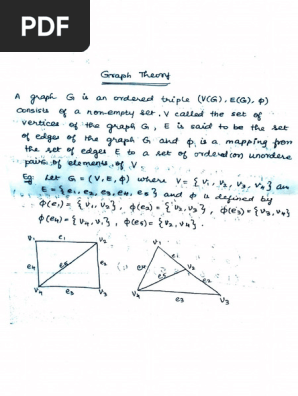 PDF
Graph Theory
A graph G is an ordered triple (V(G), E(G), φ)
consists of a non-empty set, V called the set of
vertices of the graph G, E is said to be the set
of edges of the graph G and φ is a mapping from
the set of edges E to a set of order or unordere
pairs of elements of V.
Eg: Let G = (V, E, φ) where V = {V₁, V₂, V₃, V₄} an
E = {e₁, e₂, e₃, e₄, e₅} and φ is defined by
φ(e₁) = {V₁, V₂}, φ(e₂) = {V₂, V₃}, φ(e₃) = {V₃, V₄}
φ(e₄) = {V₄, V₁}, φ(e₅) = {V₂, V₄}.
V₁ e₁ V₂ V₁
e₁
e₄ e₅ e₂ e₄ e₅ V₂ e₂
V₄ e₃ V₃ V₄ e₃ V₃